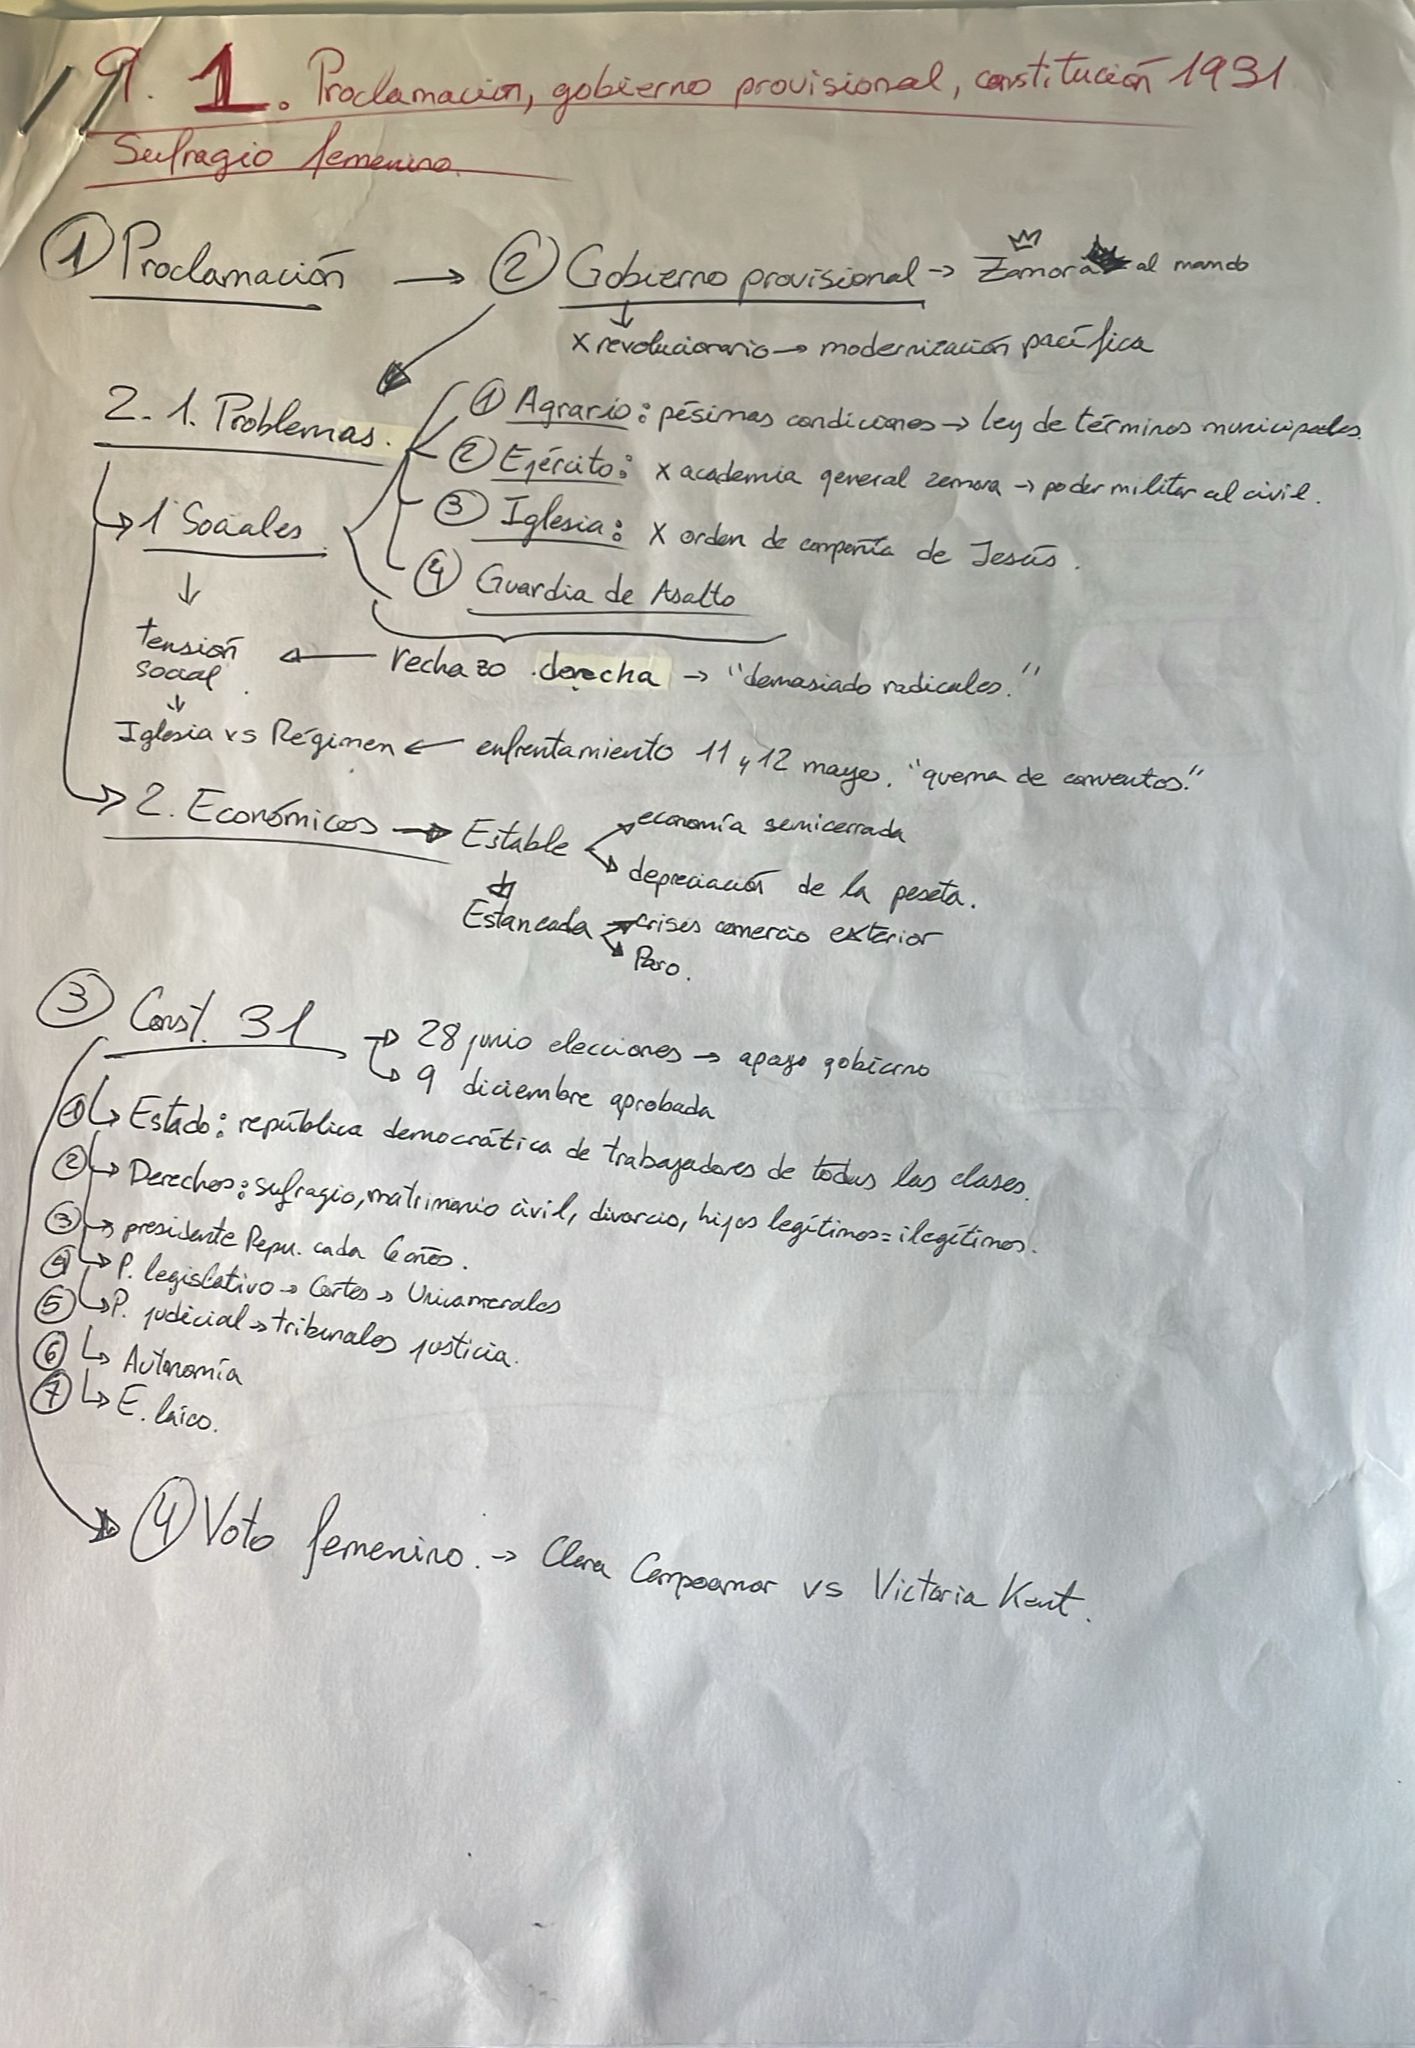 9. 1. Proclamación, gobierno provisional, constitución 1931
Sufragio femenino.
① Proclamación → ② Gobierno provisional → Zamora al mando
↓
x revolucionario → modernización pacífica
2.1. Problemas.
① Agrario: pésimas condiciones → ley de términos municipales.
② Ejército: x academia general zamora → poder militar al civil.
③ Iglesia: x orden de compañía de Jesús.
④ Guardia de Asalto
↳ 1 Sociales
↓
tensión social. ← rechazo derecha → "demasiado radicales."
↓
Iglesia vs Régimen ← enfrentamiento 11 y 12 mayo. "quema de conventos."
→ 2. Económicos → Estable
economía semicerrada
depreciación de la peseta.
Estancada
crisis comercio exterior
Paro.
③ Const. 31 → 28 junio elecciones → apoyo gobierno
↳ 9 diciembre aprobada
① ↳ Estado: república democrática de trabajadores de todas las clases.
② ↳ Derechos: sufragio, matrimonio civil, divorcio, hijos legítimos = ilegítimos.
③ → presidente Repu. cada 6 años.
④ ↳ P. legislativo → Cortes → Unicamerales
⑤ ↳ P. judicial → tribunales justicia.
⑥ ↳ Autonomía
⑦ ↳ E. laico.
④ Voto femenino. → Clara Campoamor vs Victoria Kent.